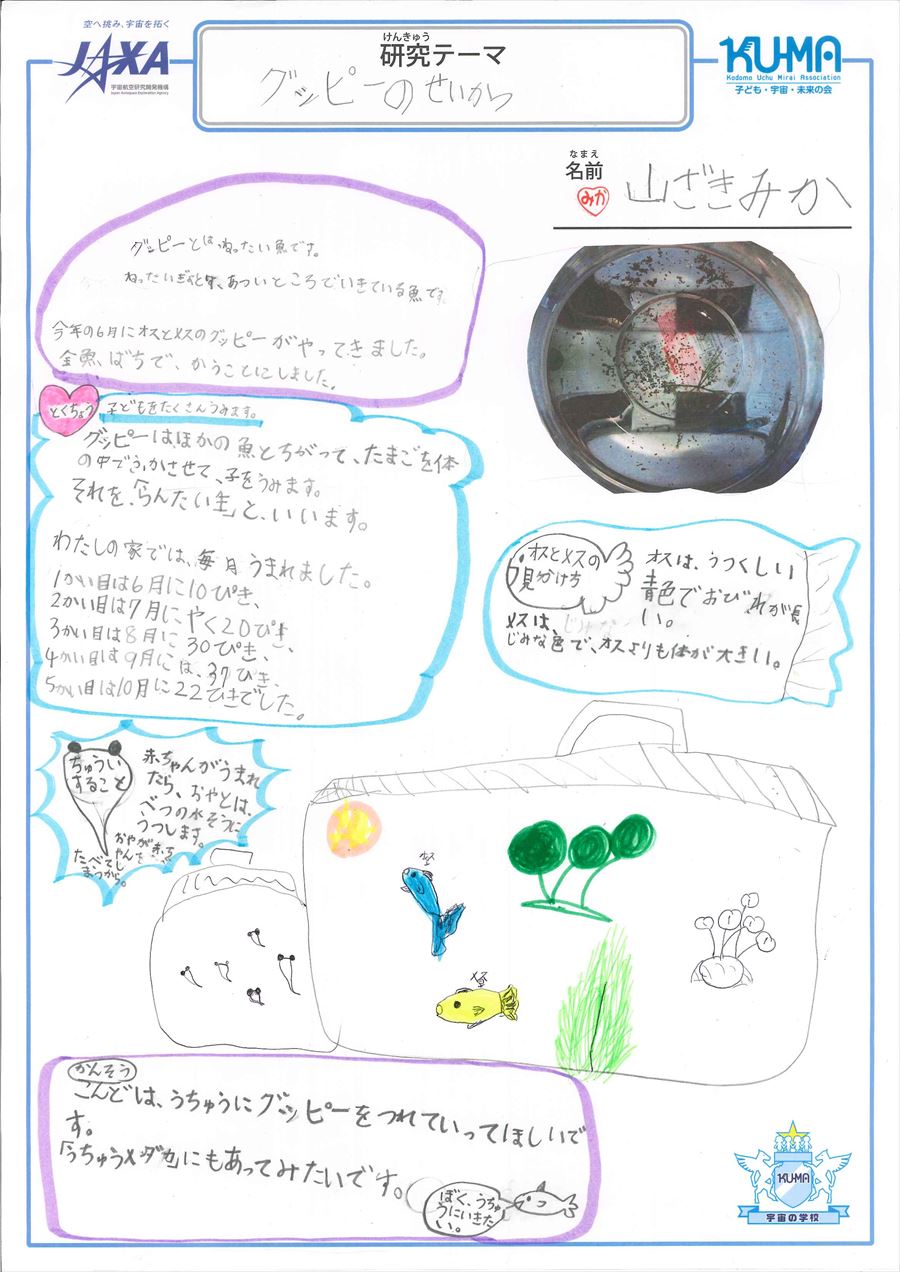 空へ挑み、宇宙を拓く
JAXA
宇宙航空研究開発機構
Japan Aerospace Exploration Agency
けんきゅう
研究テーマ
グッピーのせいかつ
KU-MA
Kodomo Uchu Mirai Association
子ども・宇宙・未来の会
なまえ
名前
みか
山ざきみか
グッピーとはねったい魚です。
ねったいぎょとは、あついところでいきている魚です。
今年の6月にオスとメスのグッピーがやってきました。
金魚ばちで、かうことにしました。
とくちょう
子どもをたくさんうみます。
グッピーはほかの魚とちがって、たまごを体
の中でふかさせて、子をうみます。
それを、「らんたい生」と、いいます。
わたしの家では、毎月うまれました。
1かい目は6月に10ぴき、
2かい目は7月にやく20ぴき、
3かい目は8月に30ぴき、
4かい目は9月には、37ひき、
5かい目は10月に22ひきでした。
オスとメスの
見分け方
オスは、うつくしい
青色でおびれが長
い。
メスは、
じみな色で、オスよりも体が大きい。
ちゅうい
すること
赤ちゃんがうまれ
たら、おやとは、
べつの水そうに
うつします。
おやが赤ち
ゃんを
たべてし
まうから。
オス
メス
かんそう
こんどは、うちゅうにグッピーをつれていってほしいで
す。
「うちゅうメダカ」にもあってみたいです。
ぼく、うちゅ
うにいきた
い。
KU-MA
宇宙の学校